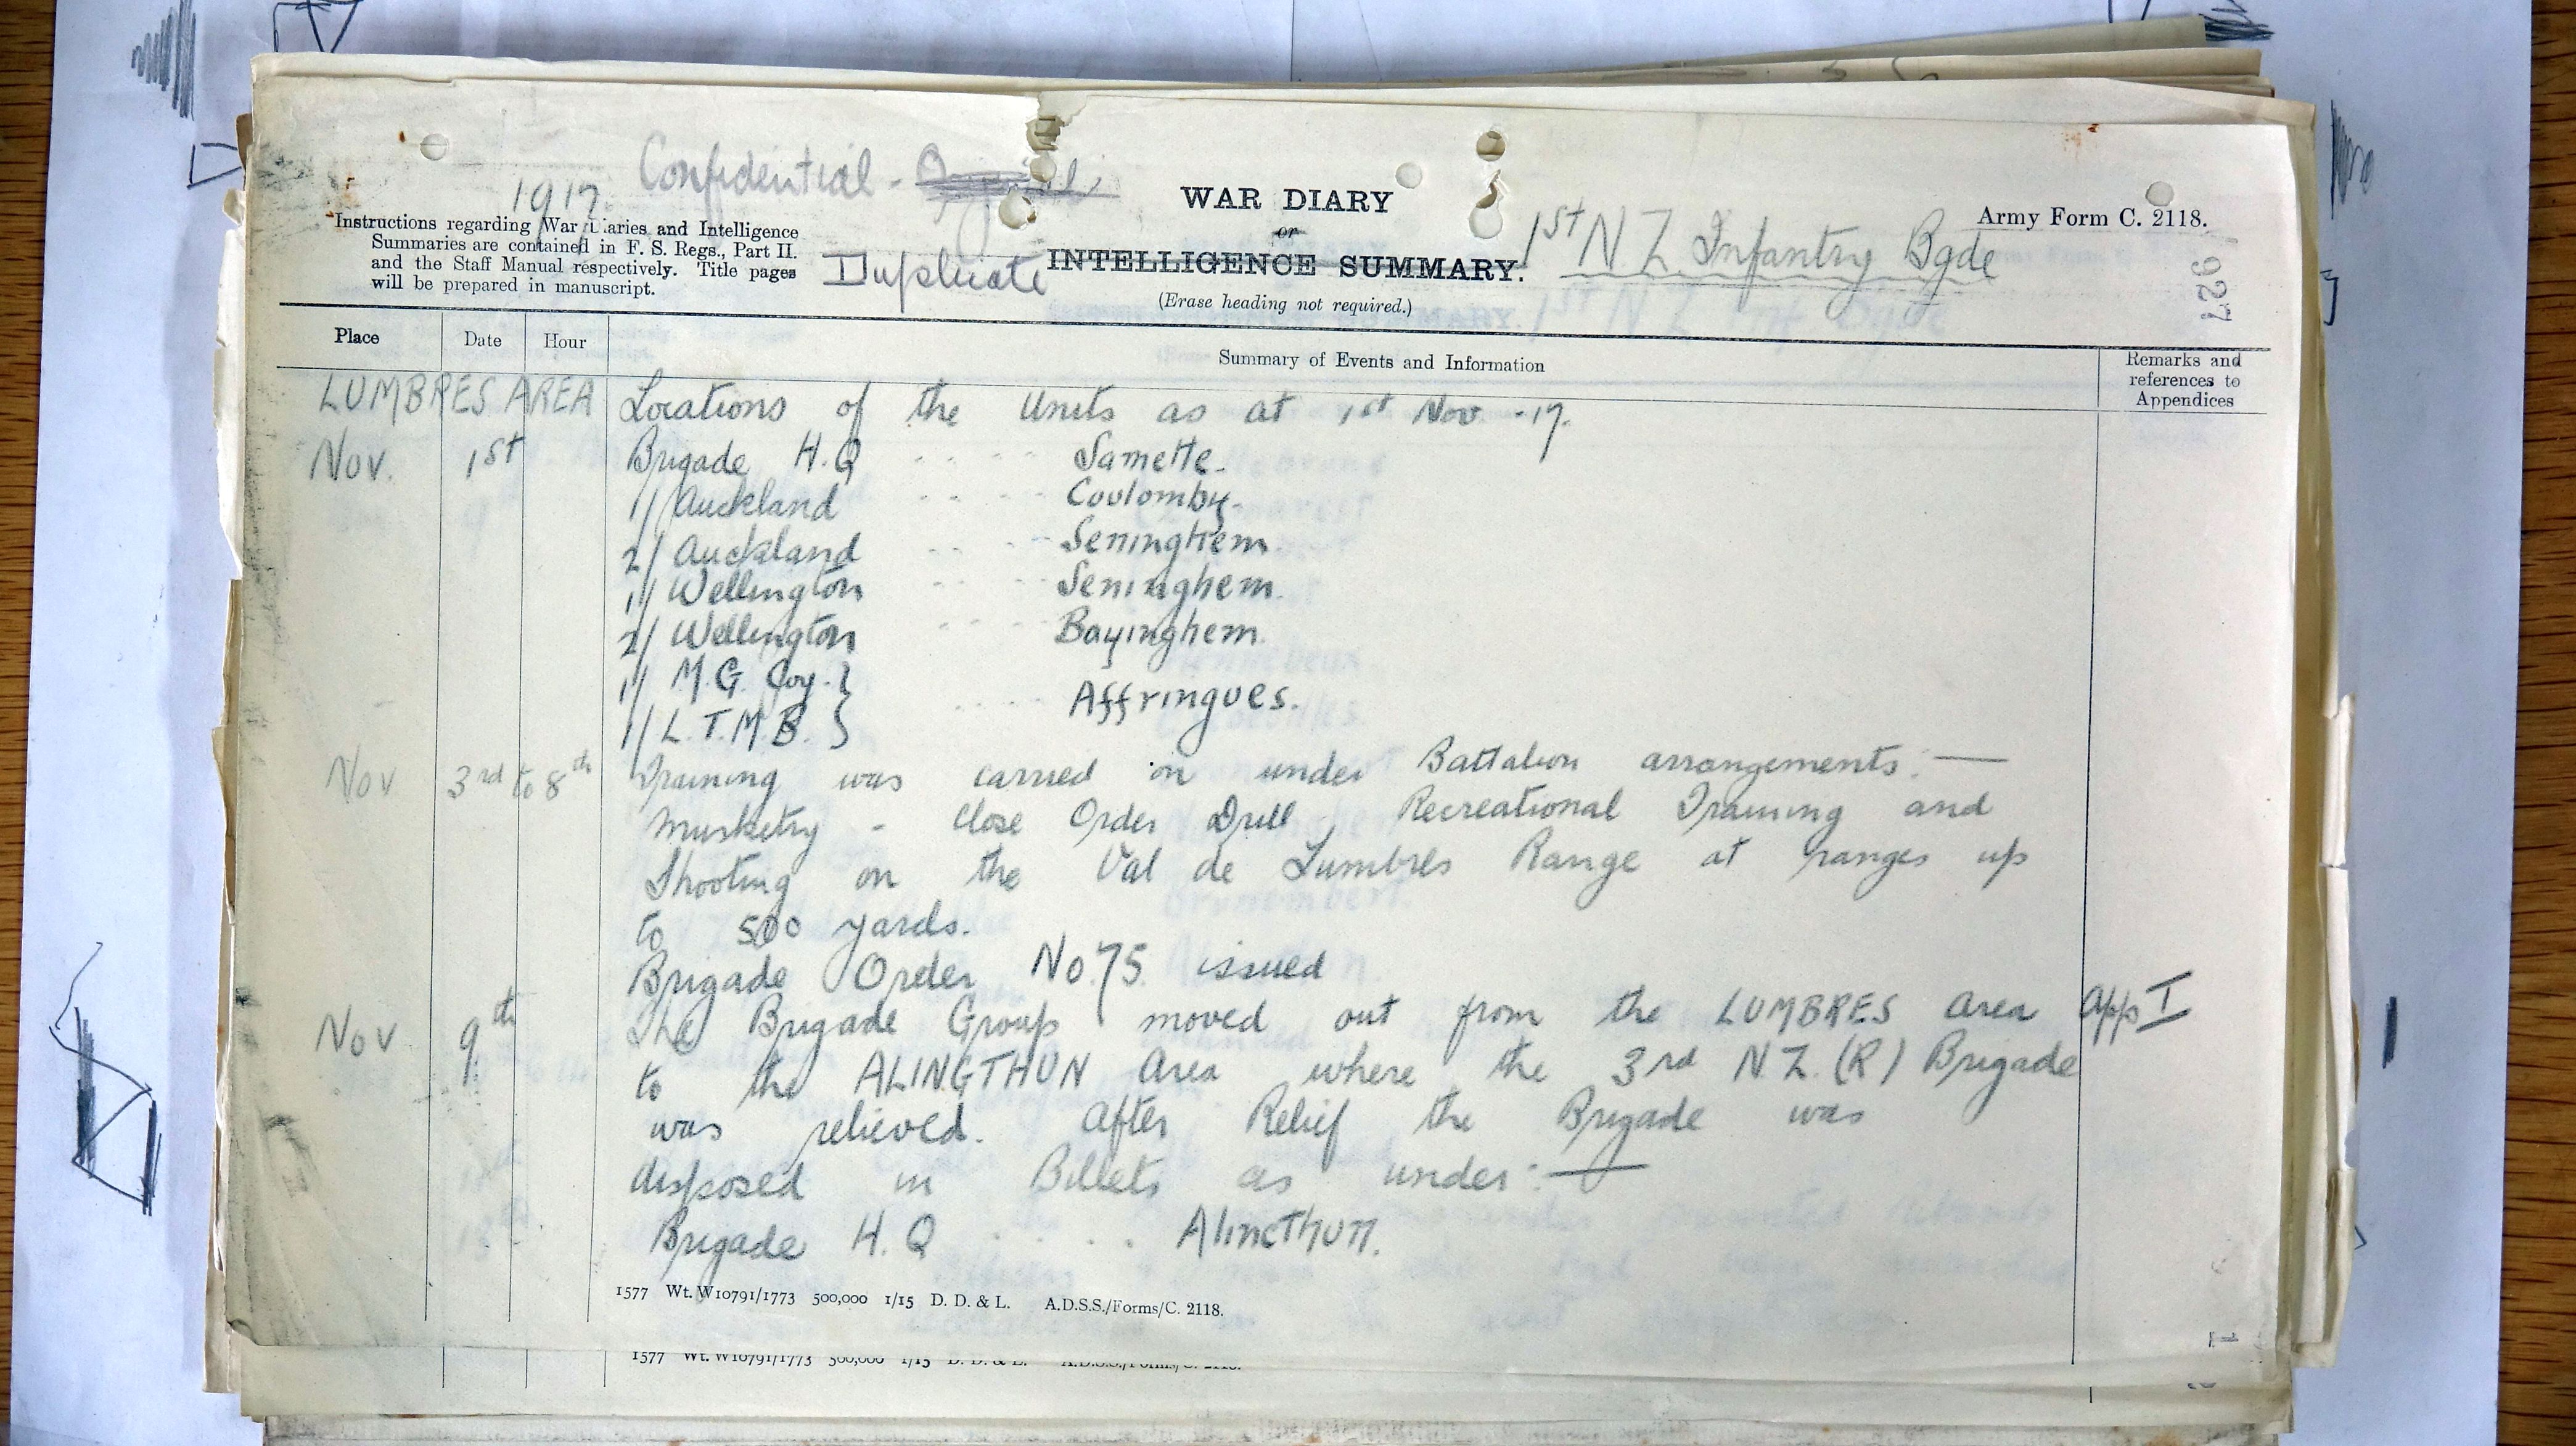 Confidential -
1917.
WAR DIARY
Army Form C. 2118.
Instructions regarding War Diaries and Intelligence
Summaries are contained in F. S. Regs., Part II.
and the Staff Manual respectively. Title pages
will be prepared in manuscript.
or
Duplicate
INTELLIGENCE SUMMARY.
1st N Z Infantry Bgde
(Erase heading not required.)
927
Place Date Hour Summary of Events and Information Remarks and
references to
Appendices
LUMBRES AREA Locations of the Units as at 1st Nov -17.
Nov. 1st Brigade H.Q .... Samette.
1/ Auckland .... Coulomby.
2/ Auckland .... Seninghem
1/ Wellington .... Seninghem.
2/ Wellington .... Bayinghem.
1/ M.G. Coy. }
.... Affringues.
1/ L.T.M.B. }
Nov 3rd to 8th Training was carried on under Battalion arrangements:—
Musketry - Close Order Drill, Recreational Training and
Shooting on the Val de Lumbres Range at ranges up
to 500 yards.
Brigade Order No. 75 issued
Nov 9th The Brigade Group moved out from the LUMBRES area App I
to the ALINGTHUN Area where the 3rd N.Z. (R) Brigade
was relieved. After Relief the Brigade was
disposed in Billets as under:—
Brigade H.Q .... Alincthun.
1577 Wt. W10791/1773 500,000 1/15 D. D. & L. A.D.S.S./Forms/C. 2118.
1
1577 Wt. W10791/1773 500,000 1/15 D. D. & L. A.D.S.S./Forms/C. 2118.